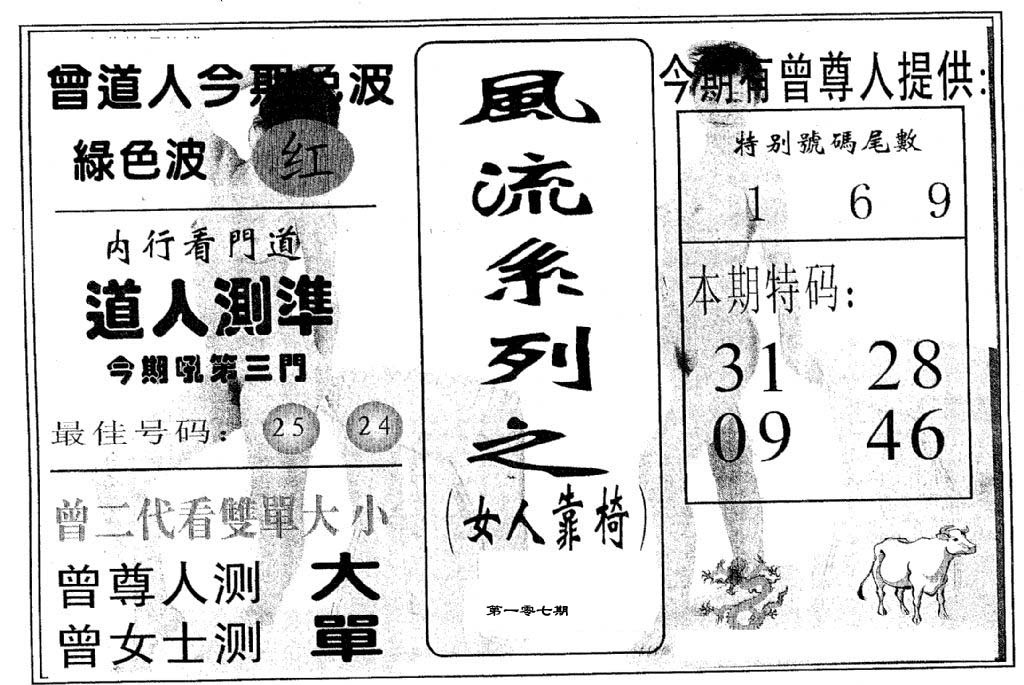 曾道人今期色波
綠色波 红
内行看門道
道人測準
今期吼第三門
最佳号码: 25 24
曾二代看雙單大小
曾尊人测 大
曾女士测 單
風流系列之
(女人靠椅)
第一零七期
今期有曾尊人提供:
特别號碼尾數
1 6 9
本期特码:
31 28
09 46